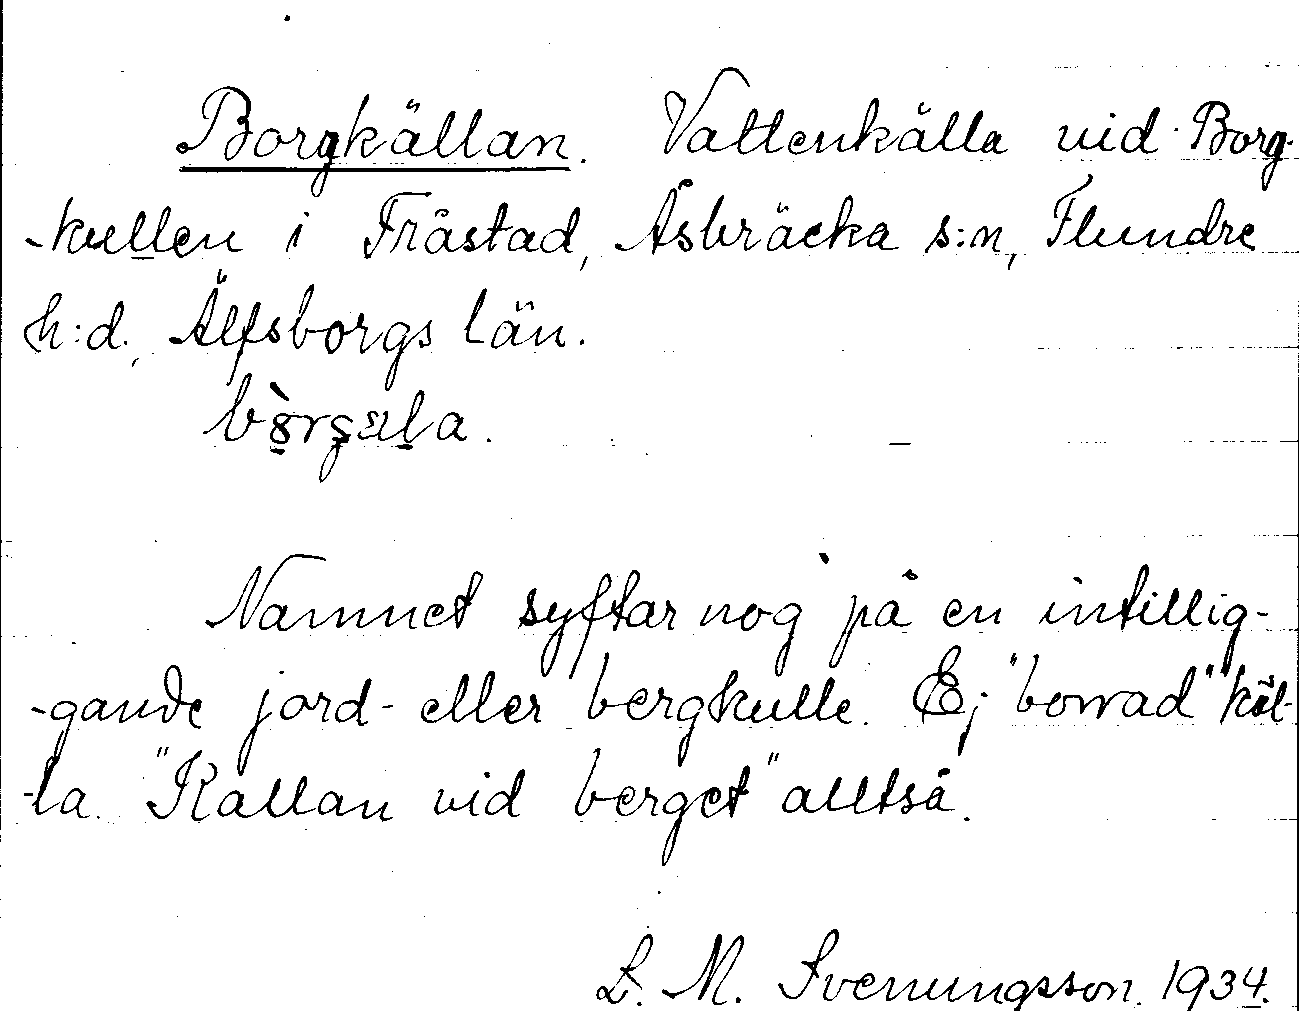 Borgkällan. Vattenkälla vid Borg-
-kullen i Fråstad, Åsbräcka s:n, Flundre
h:d., Älfsborgs län.
Namnet syftar nog på en intillig-
-gande jord- eller bergkulle. Ej "borrad" käl-
-la. "Källan vid berget" alltså.
L. M. Svenungsson. 1934.